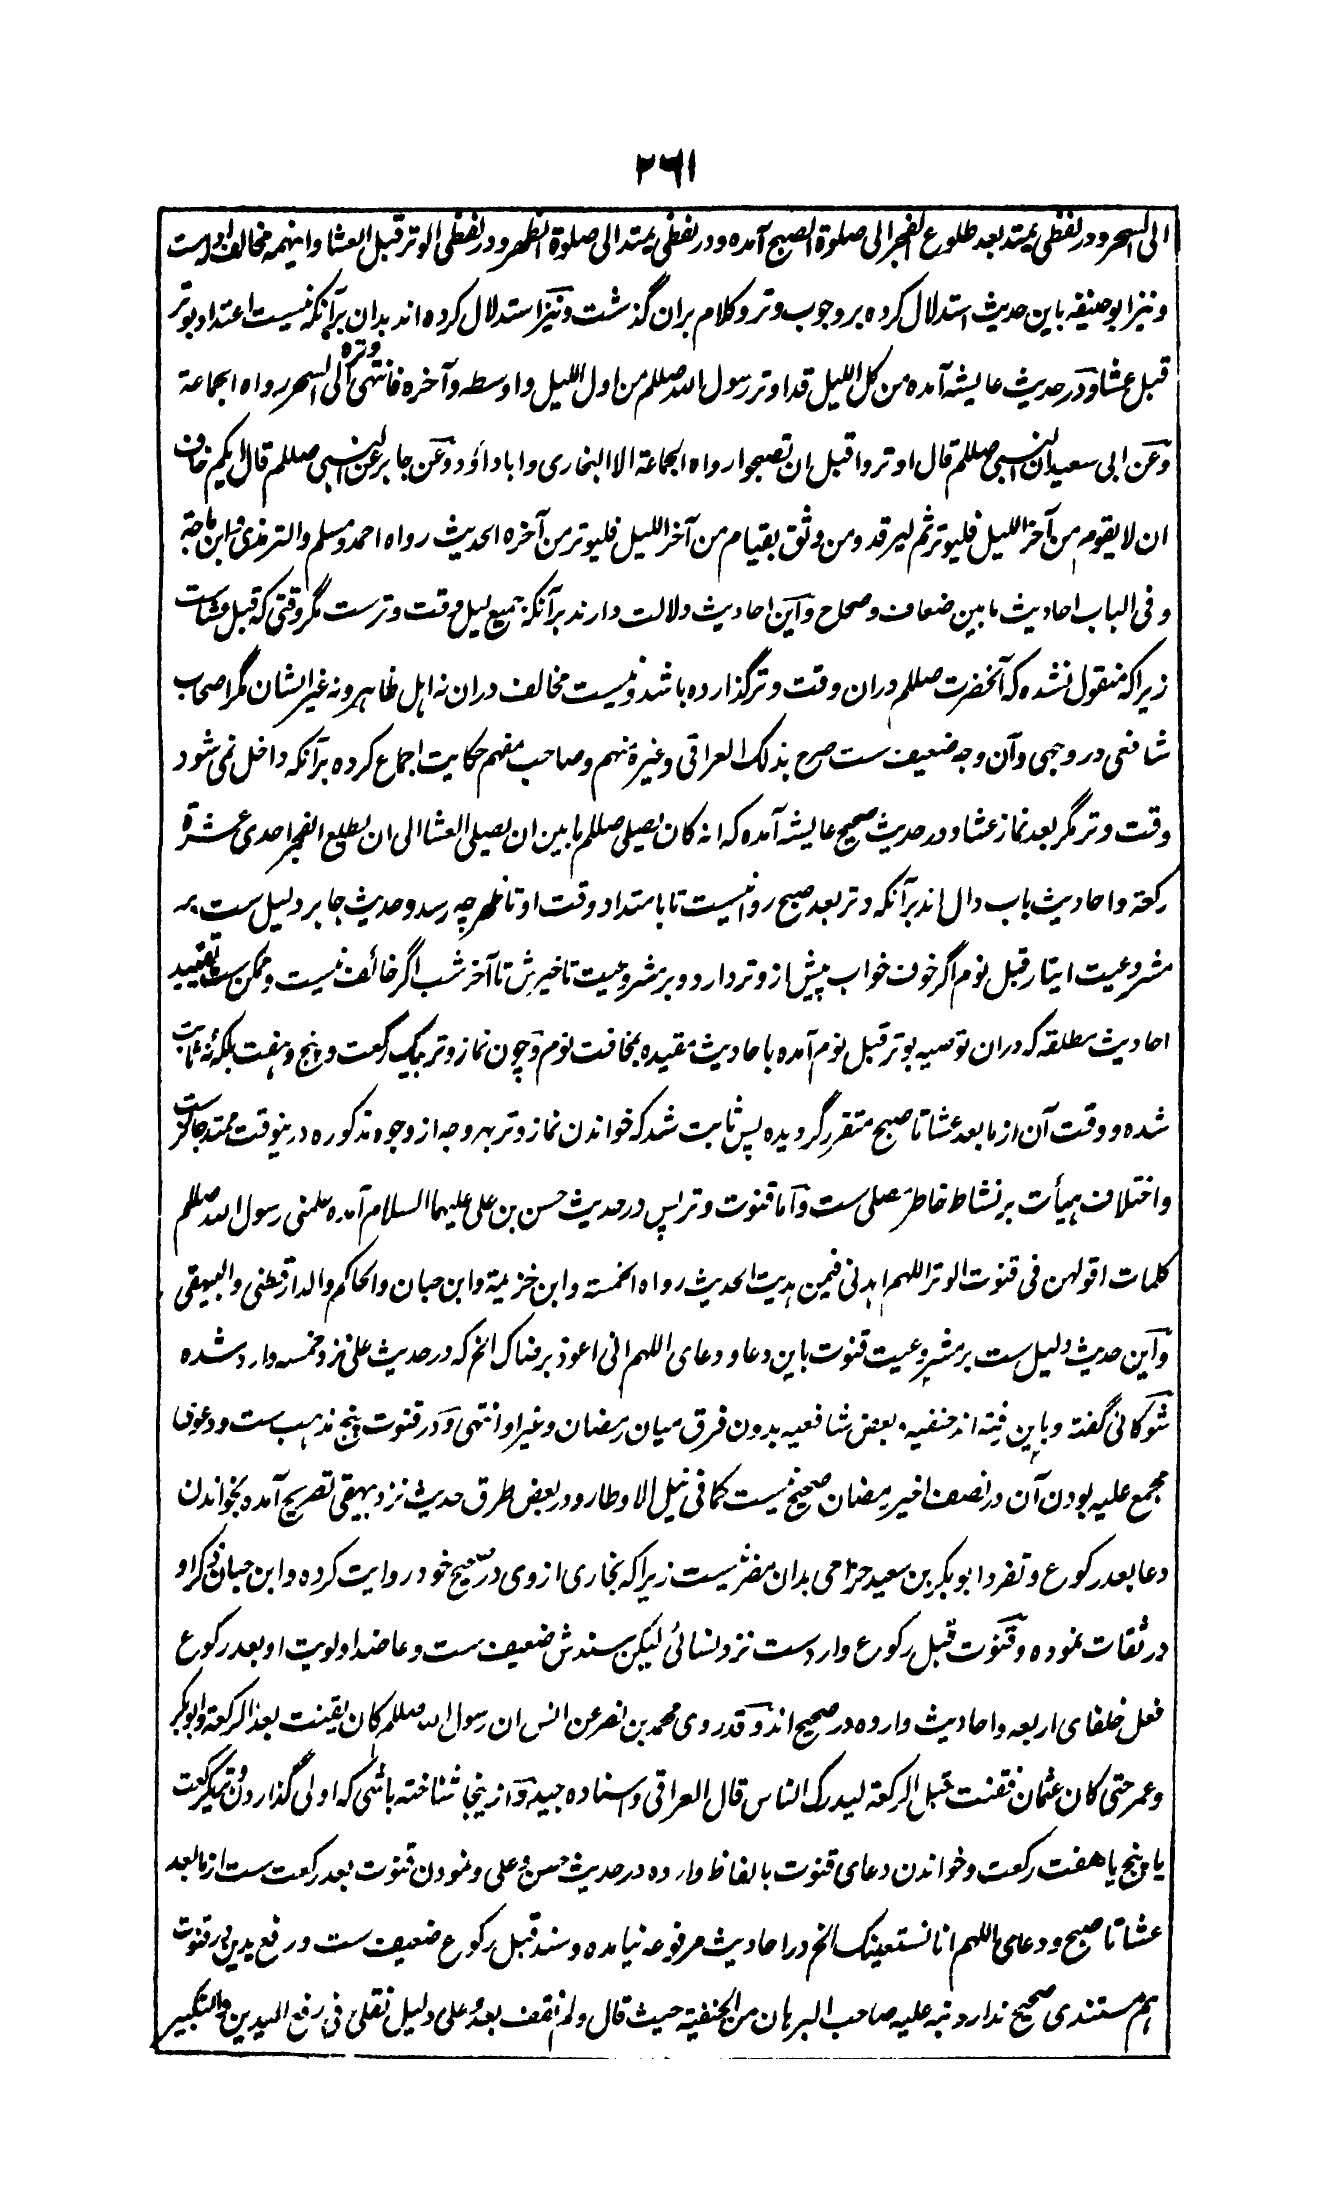 ۲۶۱
الی السحر و در لفظی یمتد بعد طلوع الفجر الی صلوة الصبح آمده و در لفظی یمتد الی صلوة الظهر و در لفظی الوتر قبل العشا و اینهمه مخالف اوله است
و نیز ابو حنیفه باین حدیث استدلال کرده بر وجوب وتر و کلام بران گذشت و نیز استدلال کرده اند بدان برآنکه نیست اعتداد بوتر
قبل عشا و در حدیث عایشه آمده من کل اللیل قد اوتر رسول الله صللم من اول اللیل و اوسطه و آخره فانتهی وتره الی السحر رواه الجماعة
و عن ابی سعید ان النبی صللم قال اوتروا قبل ان تصبحوا رواه الجماعة الا البخاری و ابا داؤد و عن جابر عن النبی صللم قال ایکم خاف
ان لا یقوم من آخر اللیل فلیوتر ثم لیرقد و من وثق بقیام من آخر اللیل فلیوتر من آخره الحدیث رواه احمد و مسلم و الترمذی و ابن ماجة
و فی الباب احادیث ما بین ضعاف و صحاح و این احادیث دلالت دارند برآنکه جمیع لیل وقت وترست مگر وقتی که قبل عشاست
زیرا که منقول نشده که آنحضرت صللم دران وقت وتر گذارده باشد و نیست مخالف دران نه اهل ظاهر و نه غیر ایشان مگر اصحاب
شافعی در وجهی و آن وجه ضعیف ست صرح بذلک العراقی و غیره منهم و صاحب مفهم حکایت اجماع کرده برآنکه داخل نمی شود
وقت وتر مگر بعد نماز عشا و در حدیث صحیح عایشه آمده که انه کان یصلی صللم ما بین ان یصلی العشا الی ان یطلع الفجر احدی عشرة
رکعة و احادیث باب دال اند برآنکه وتر بعد صبح روا نیست تا بامتداد وقت او تا ظهر چه رسد و حدیث جابر دلیل ست بر
مشروعیت ایتار قبل نوم اگر خوف خواب پیش از وتر دارد و بر مشروعیت تاخیرش تا آخر شب اگر خائف نیست و ممکن ست تقیید
احادیث مطلقه که دران توصیه بوتر قبل نوم آمده با حادیث مقیده بمخافت نوم و چون نماز وتر بیک رکعت و پنج و هفت بلکه نه ثابت
شده و وقت آن از ما بعد عشا تا صبح متقرر گردیده پس ثابت شد که خواندن نماز وتر بهر وجه از وجوه مذکوره درینوقت ممتد جائزست
و اختلاف هیأت بر نشاط خاطر مصلی ست و اما قنوت وتر پس در حدیث حسن بن علی علیهما السلام آمده علمنی رسول الله صللم
کلمات اقولهن فی قنوت الوتر اللهم اهدنی فیمن هدیت الحدیث رواه الخمسة و ابن خزیمة و ابن حبان و الحاکم و الدارقطنی و البیهقی
و این حدیث دلیل ست بر مشروعیت قنوت باین دعا و دعای اللهم انی اعوذ برضاک الخ که در حدیث علی نزد خمسه وارد شده
شوکانی گفته و باین رفته اند حنفیه و بعض شافعیه بدون فرق میان رمضان و غیر او انتهی و در قنوت پنج مذهب ست و دعوی
مجمع علیه بودن آن در نصف اخیر رمضان صحیح نیست کما فی نیل الاوطار و در بعض طرق حدیث نزد بیهقی تصریح آمده بخواندن
دعا بعد رکوع و تفرد ابو بکر بن سعید حزامی بدان مضر نیست زیرا که بخاری از وی در صحیح خود روایت کرده و ابن حبان ذکر او
در ثقات نموده و قنوت قبل رکوع واردست نزد نسائی لیکن سندش ضعیف ست و عاضد اولویت او بعد رکوع
فعل خلفای اربعه و احادیث وارده در صحیح اند و قد روی محمد بن نصر عن انس ان رسول الله صللم کان یقنت بعد الرکعة و ابو بکر
و عمر حتی کان عثمان فقنت قبل الرکعة لیدرک الناس قال العراقی و اسناده جید و ازینجا شناخته باشی که اولی گذاردن وتر بیک رکعت
یا پنج یا هفت رکعت و خواندن دعای قنوت بالفاظ وارده در حدیث حسن و علی و نمودن قنوت بعد رکعت ست از ما بعد
عشا تا صبح و دعای اللهم انا نستعینک الخ در احادیث مرفوعه نیامده و سند قبل رکوع ضعیف ست و رفع یدین در قنوت
هم مستندی صحیح ندارد و نبه علیه صاحب البرهان من الحنفیة حیث قال و لم نقف بعد علی دلیل نقلی فی رفع الیدین و التکبیر